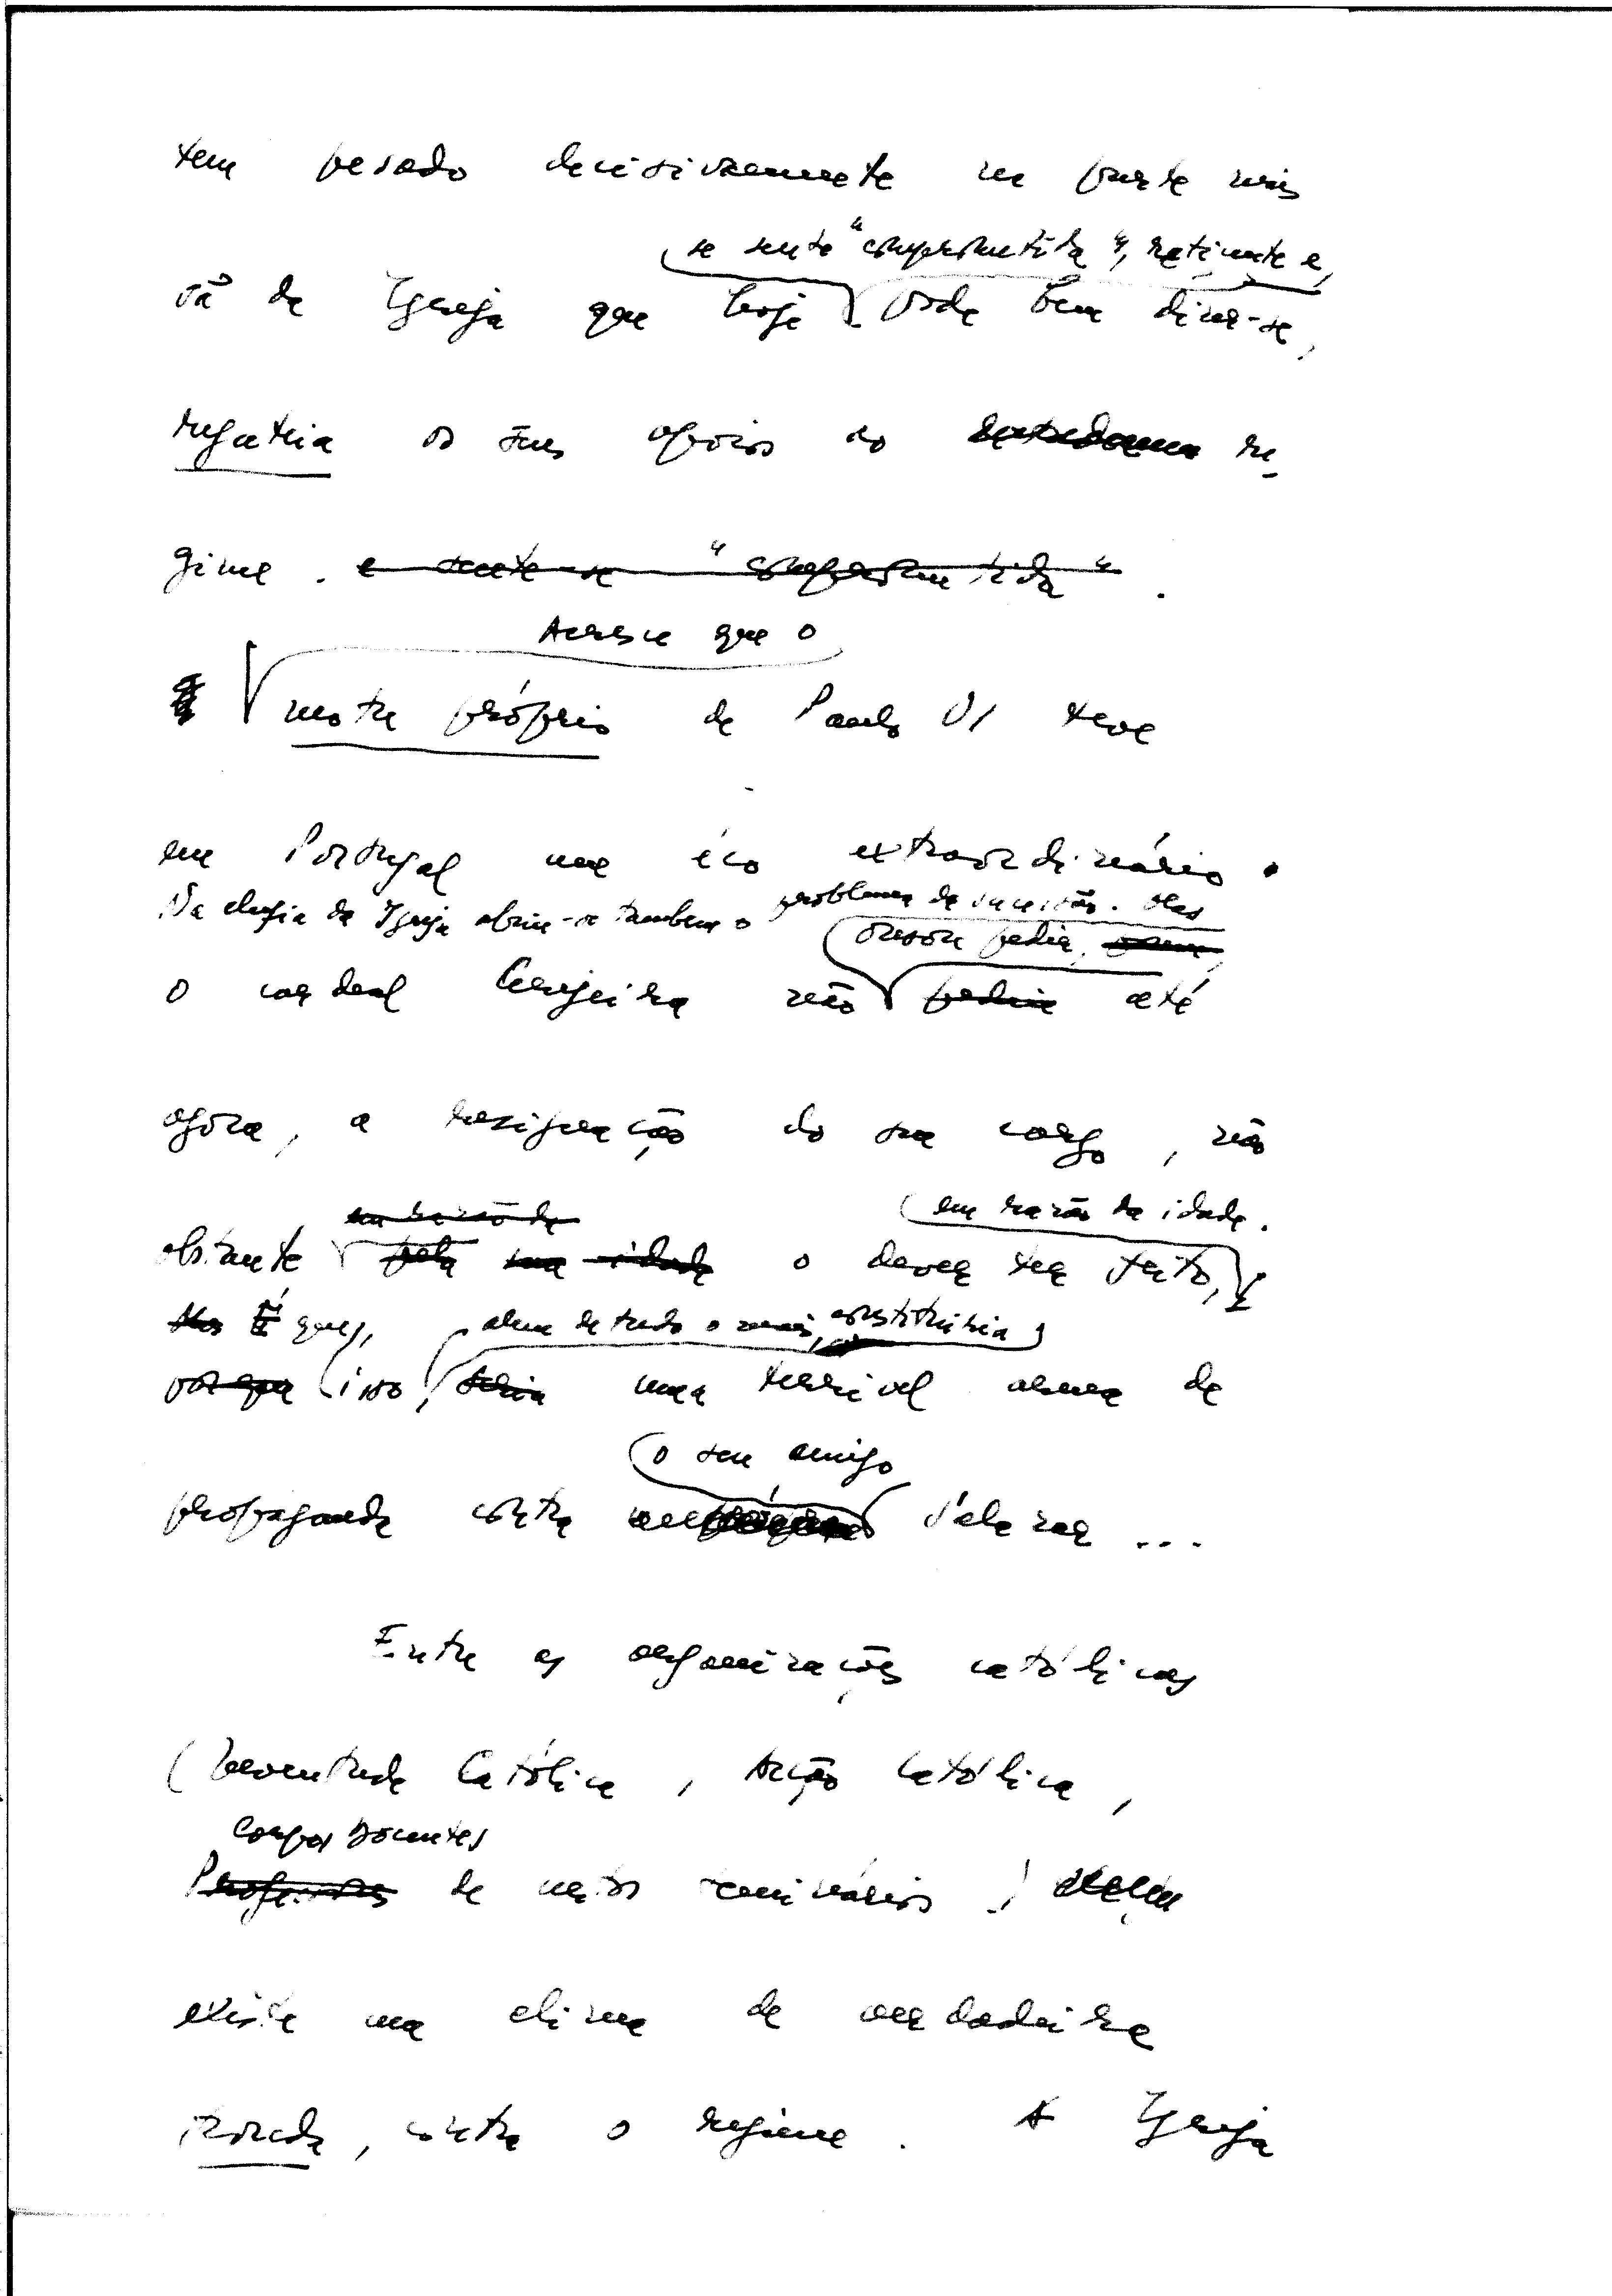 tem pesado decisivamente na parte mais
se sente "comprometida", reticente e,
sã da Igreja que hoje pode bem dizer-se,
regateia os seus apoios ao re-
gime. e sente-se "comprometida".
Acresce que o
motu próprio de Paulo VI teve
em Portugal um éco extraordinário.
Na chefia da Igreja abriu-se tambem o problema da sucessão. Mas
ousou pedir,
o cardeal Cerejeira não pediu até
agora, a resignação do seu cargo, não
em razão da em razão da idade.
obstante pela sua idade o dever ter feito,
Mas É que,, alem de tudo o mais, constituiria
porque isso, seria uma terrivel arma de
o seu amigo
propaganda contra Salazar ...
Entre as organizações católicas
(Juventude Católica, Acção Católica,
Corpos Docentes
Professores de vários seminários)
existe um clima de verdadeira
, contra o regime. A Igreja